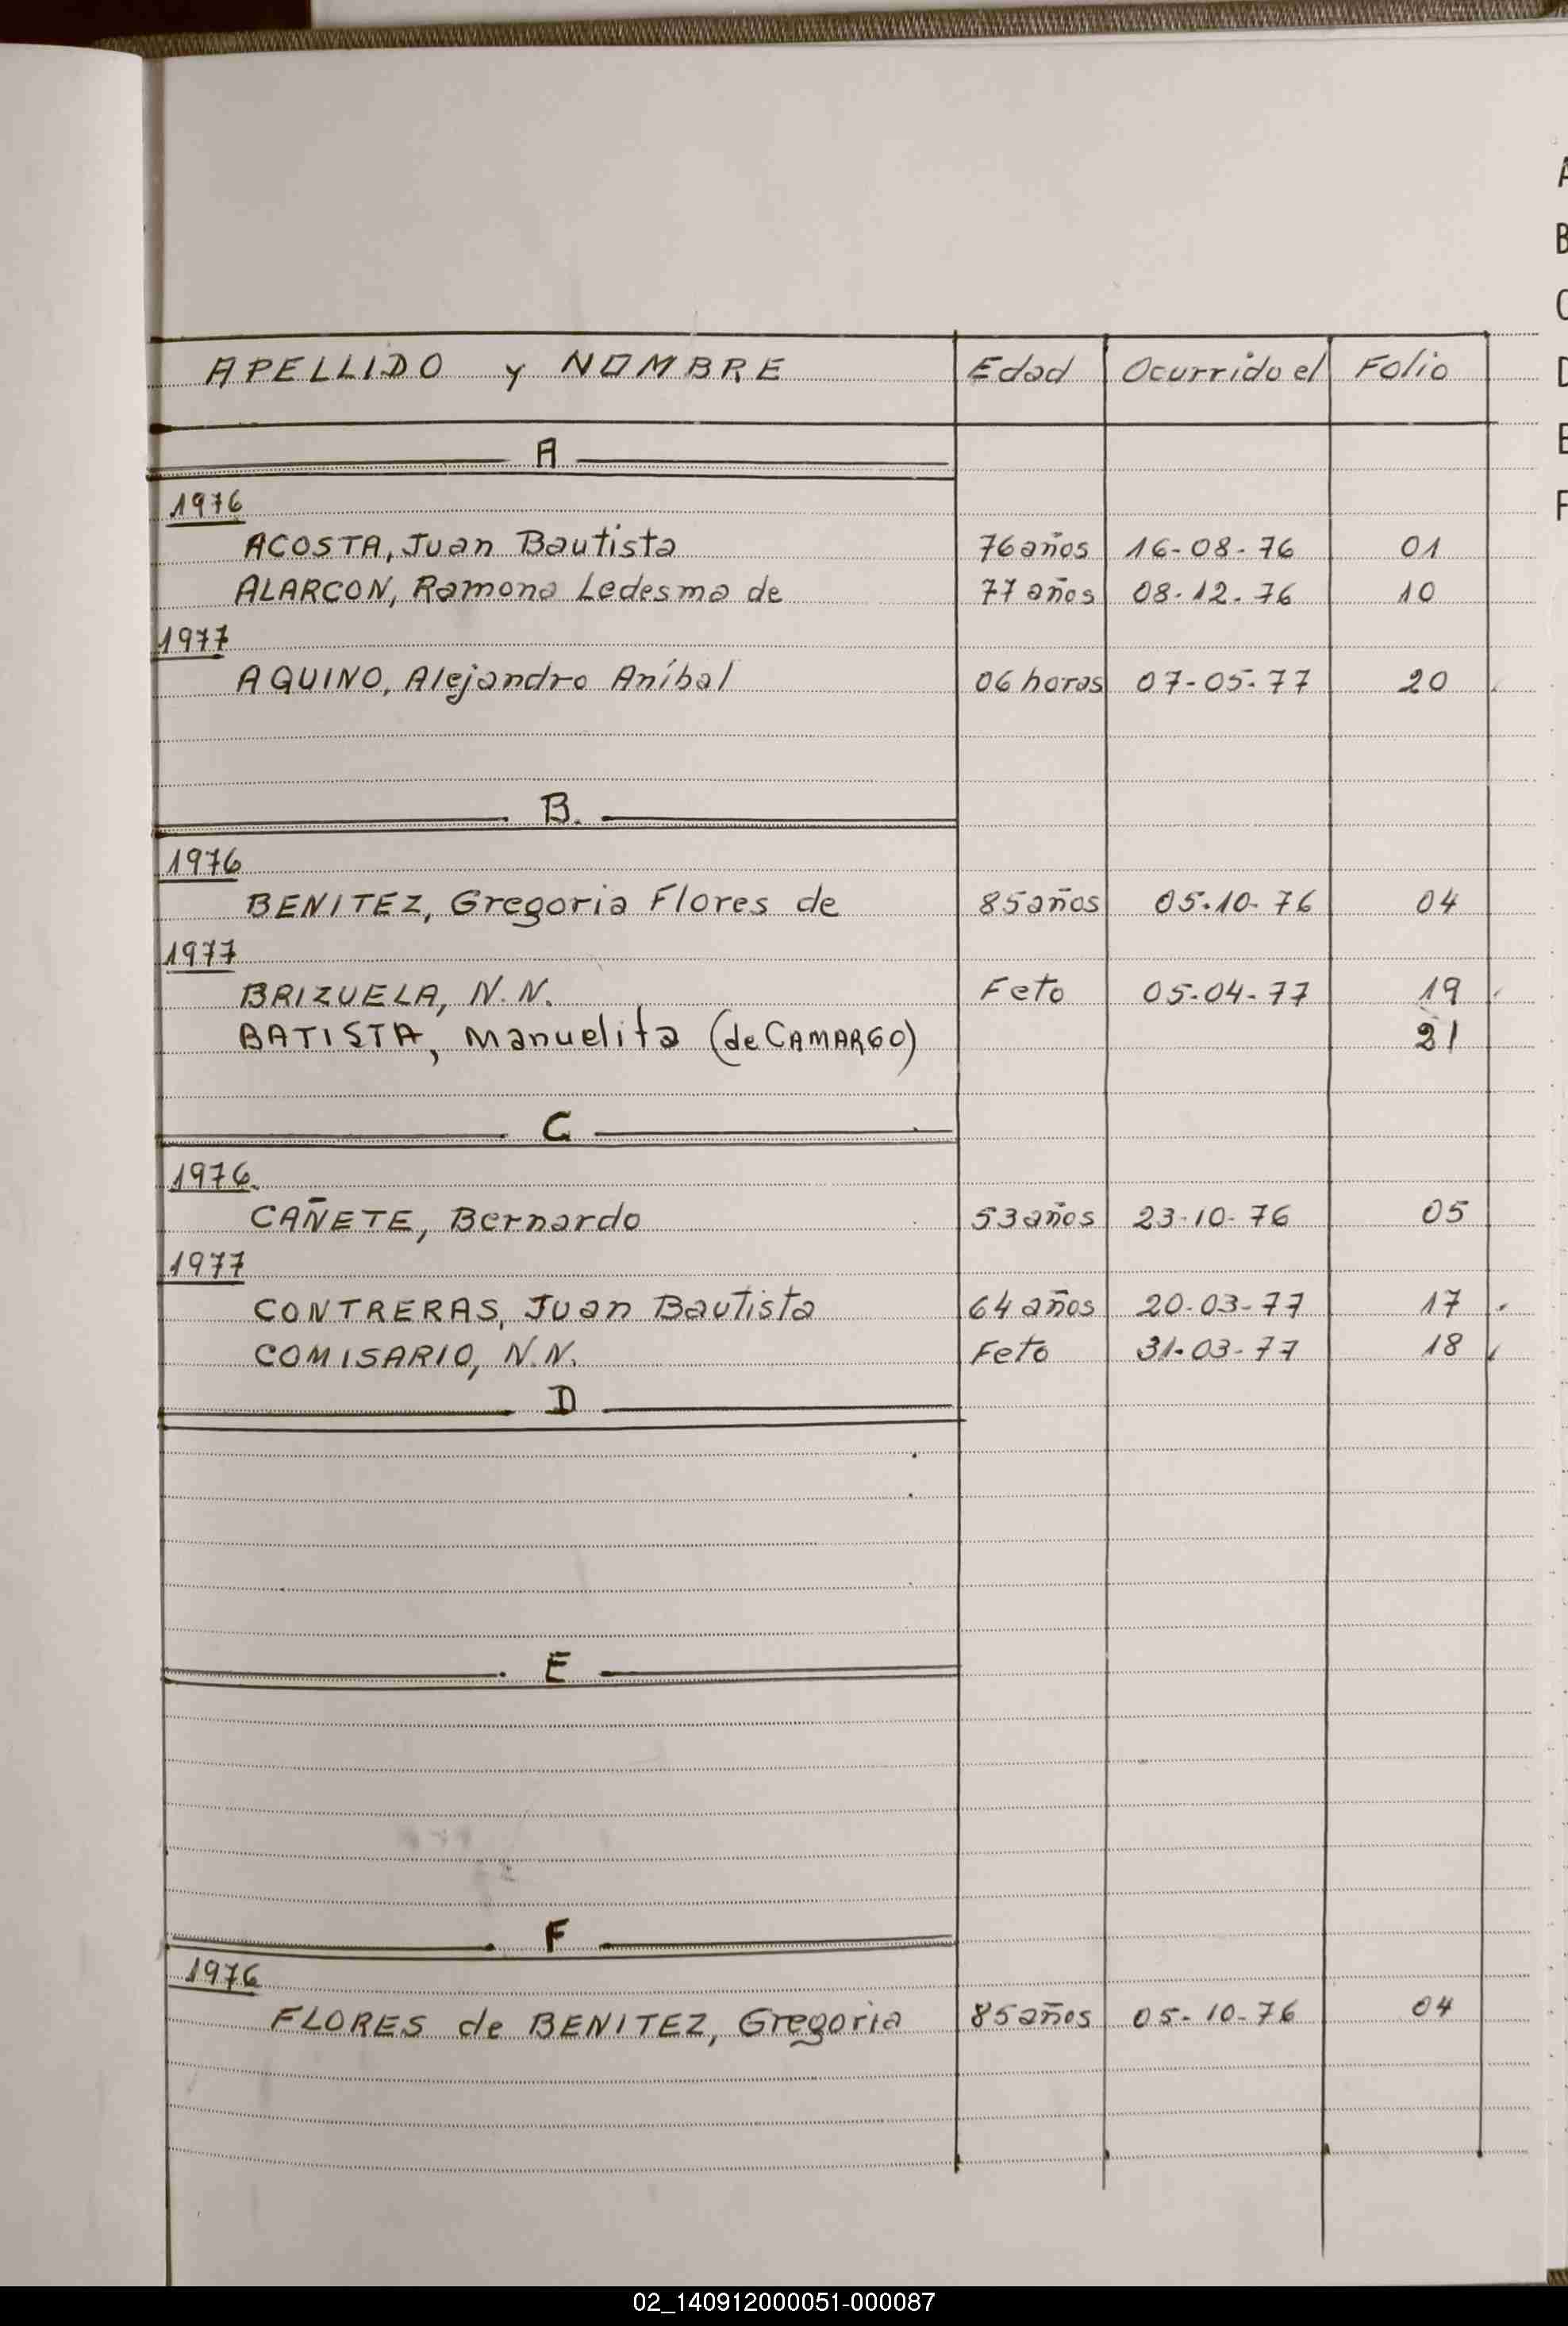 APELLIDO y NOMBRE Edad Ocurrido el Folio
A
1976
ACOSTA, Juan Bautista 76 años 16-08-76 01
ALARCON, Ramona Ledesma de 77 años 08-12-76 10
1977
AQUINO, Alejandro Aníbal 06 horas 07-05-77 20
B.
1976
BENITEZ, Gregoria Flores de 85 años 05-10-76 04
1977
BRIZUELA, N.N. Feto 05-04-77 19
BATISTA, Manuelita (de CAMARGO) 21
C
1976
CAÑETE, Bernardo 53 años 23-10-76 05
1977
CONTRERAS, Juan Bautista 64 años 20-03-77 17
COMISARIO, N.N. Feto 31-03-77 18
D
E
F
1976
FLORES de BENITEZ, Gregoria 85 años 05-10-76 04
A
B
C
D
E
F
02_140912000051-000087